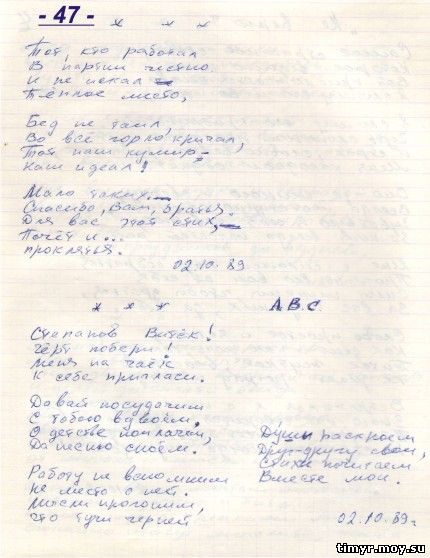 - 47 -
* * *
Тот, кто работал
В партии честно
И не искал
Тёплое место,
Бед не таил,
Во всё горло кричал,
Тот наш кумир -
Наш идеал!
Мало таких...
Спасибо, Вам, братья.
Для вас этот стих,
Почёт и...
проклятья.
02.10.89
* * *
А.В.С.
Степанов Витёк!
Чёрт побери!
Меня на чаёк
К себе пригласи.
Давай посудачим
С тобою вдвоём,
О детстве поплачем,
Да песню споём.
Работу не вспомним
Не место о ней.
Мысли прогоним,
Что тучи черней
Души раскроем
Друг-другу свои,
Стихи почитаем
Вместе мои.
02.10.89г
timyr.moy.su